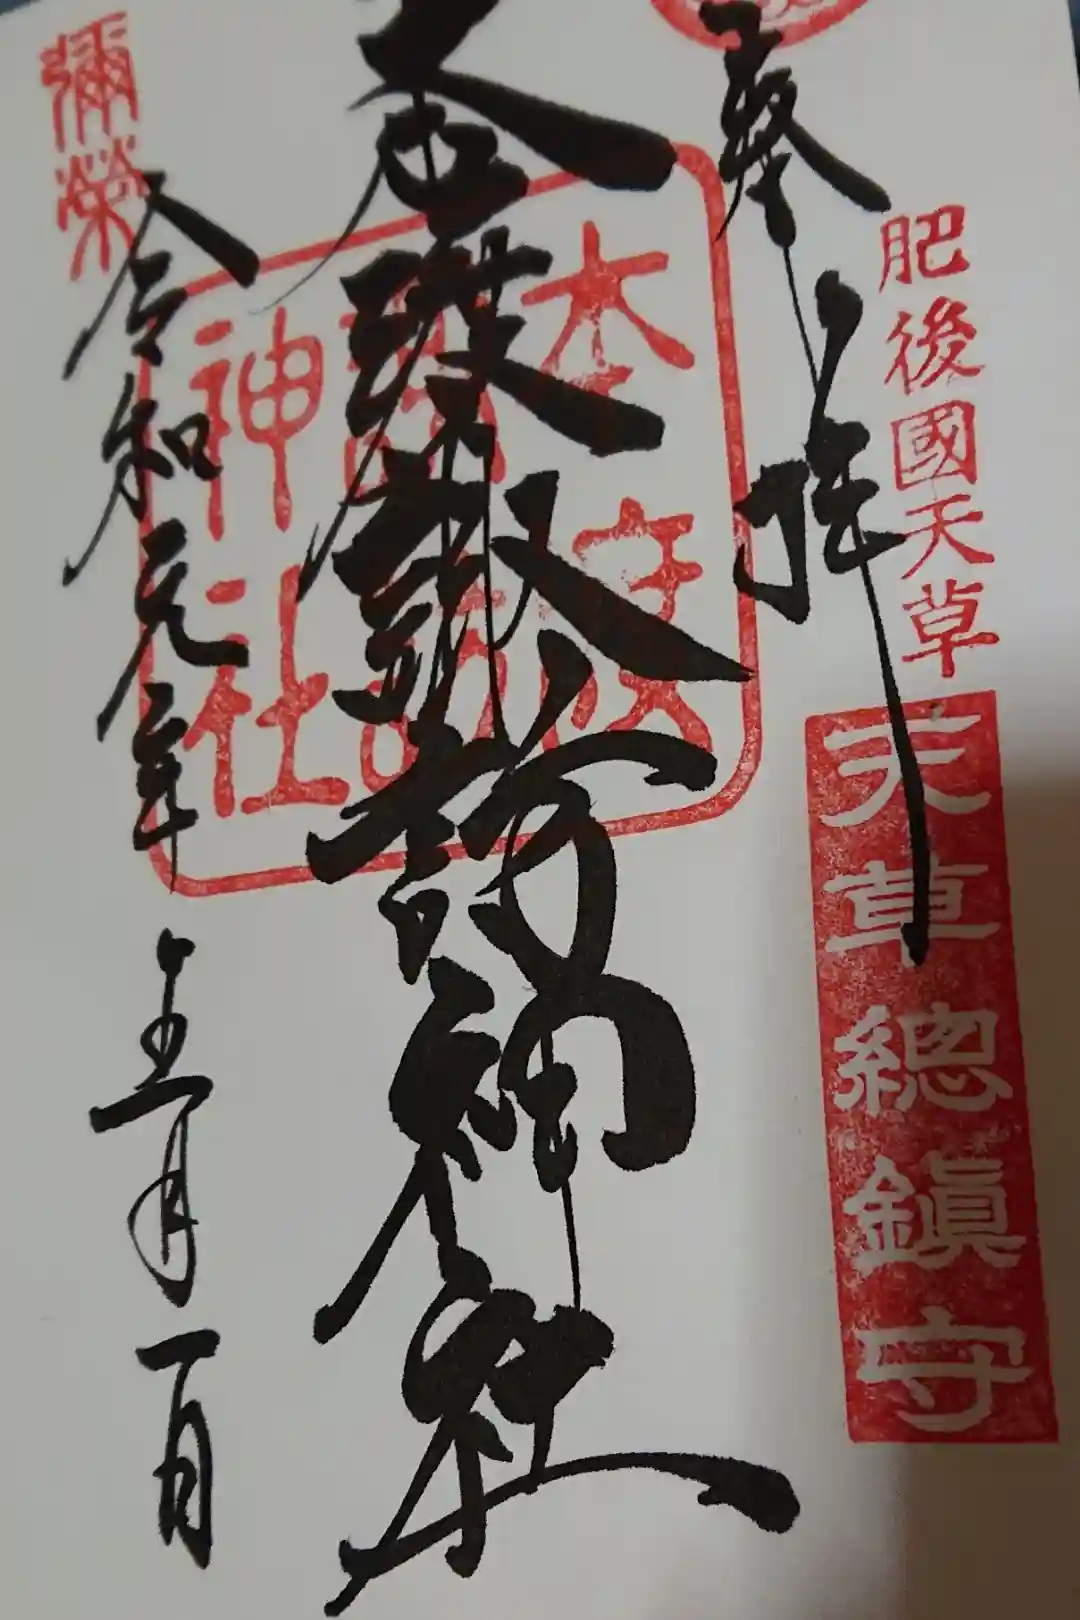 奉拝
肥後國天草
天草總鎮守
本渡諏訪神社
本渡諏訪神社
彌榮
令和元年五月一日